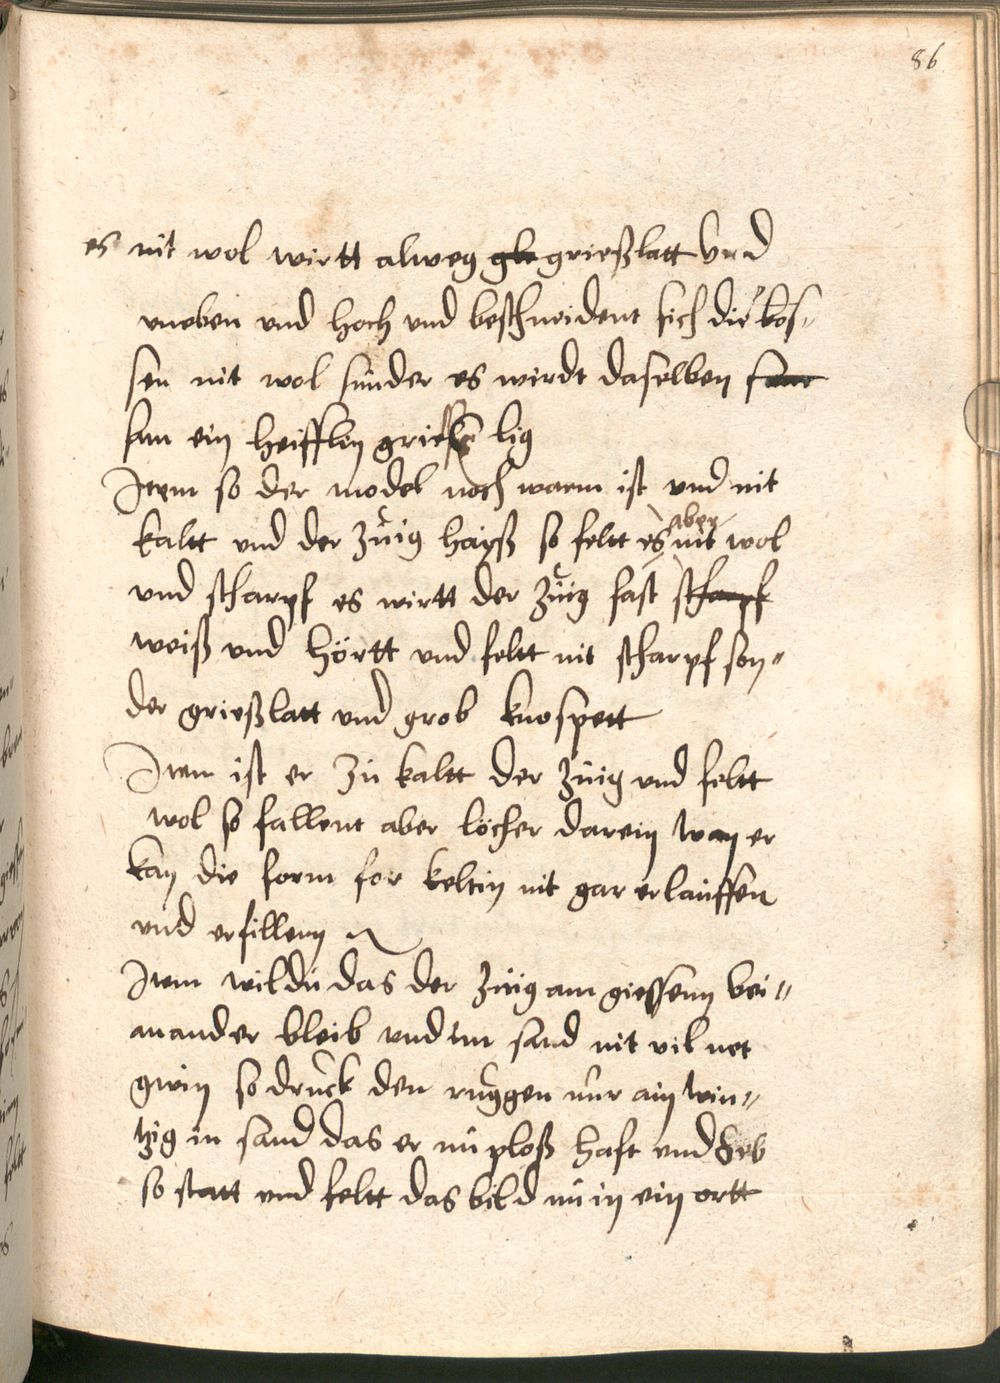 86
es nit wol wirtt alweg grießlatt vnd
vneben vnd hoch vnd beschneident sich die bos-
sen nit wol sunder es wirdt daselben
sam ein heifflin lig
Item so der model noch warm ist vnd nit
kaltt vnd der züig haiß so feltt es aber nit wol
vnd scharpf es wirtt der züig fast scharpf
weiß vnd hörtt vnd feltt nit scharpf son-
der grießlatt vnd grob knospett
Item ist er zu kaltt der züig vnd feltt
wol so fallent aber löcher darein wan er
kan die form for keltin nit gar erlauffen
vnd erfillenn
Item wildu das der züig am giessenn bei-
anander bleib vnd im sand nit vil net
gwin so druck den ruggen nur ain win-
tzig in sand das er nu ploß haft vnd heb
so statt vnd feltt das bild nu in ein ortt